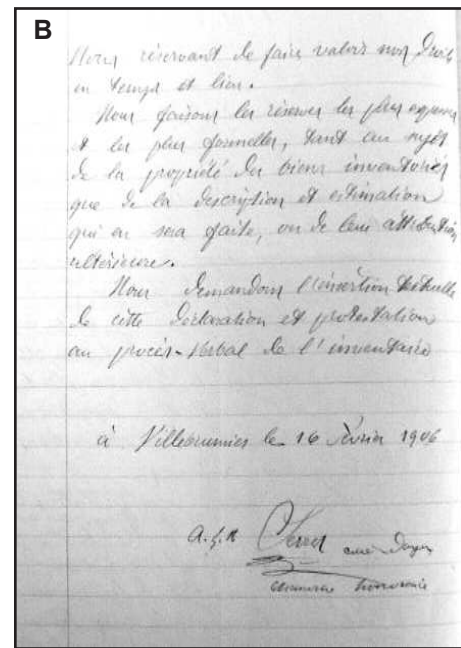 B
Nous réservant de faire valoir nos Droits
en temps et lieu.
Nous faisons les réserves les plus expresses
et les plus formelles, tant au sujet
de la propriété des biens inventoriés
que de la description et estimation
qui en sera faite, ou de leur attribution
ultérieure.
Nous demandons l'insertion textuelle
de cette Déclaration et protestation
au procès-verbal de l'inventaire
à Villebrumier le 16 Février 1906
curé-Doyen
chanoine honoraire